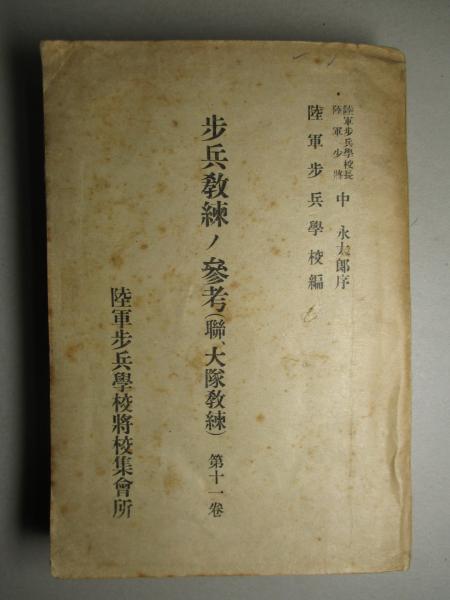 陸軍步兵學校長
陸軍少將
中永太郎序
陸軍步兵學校編
步兵教練ノ參考(聯、大隊教練) 第十一卷
陸軍步兵學校將校集會所